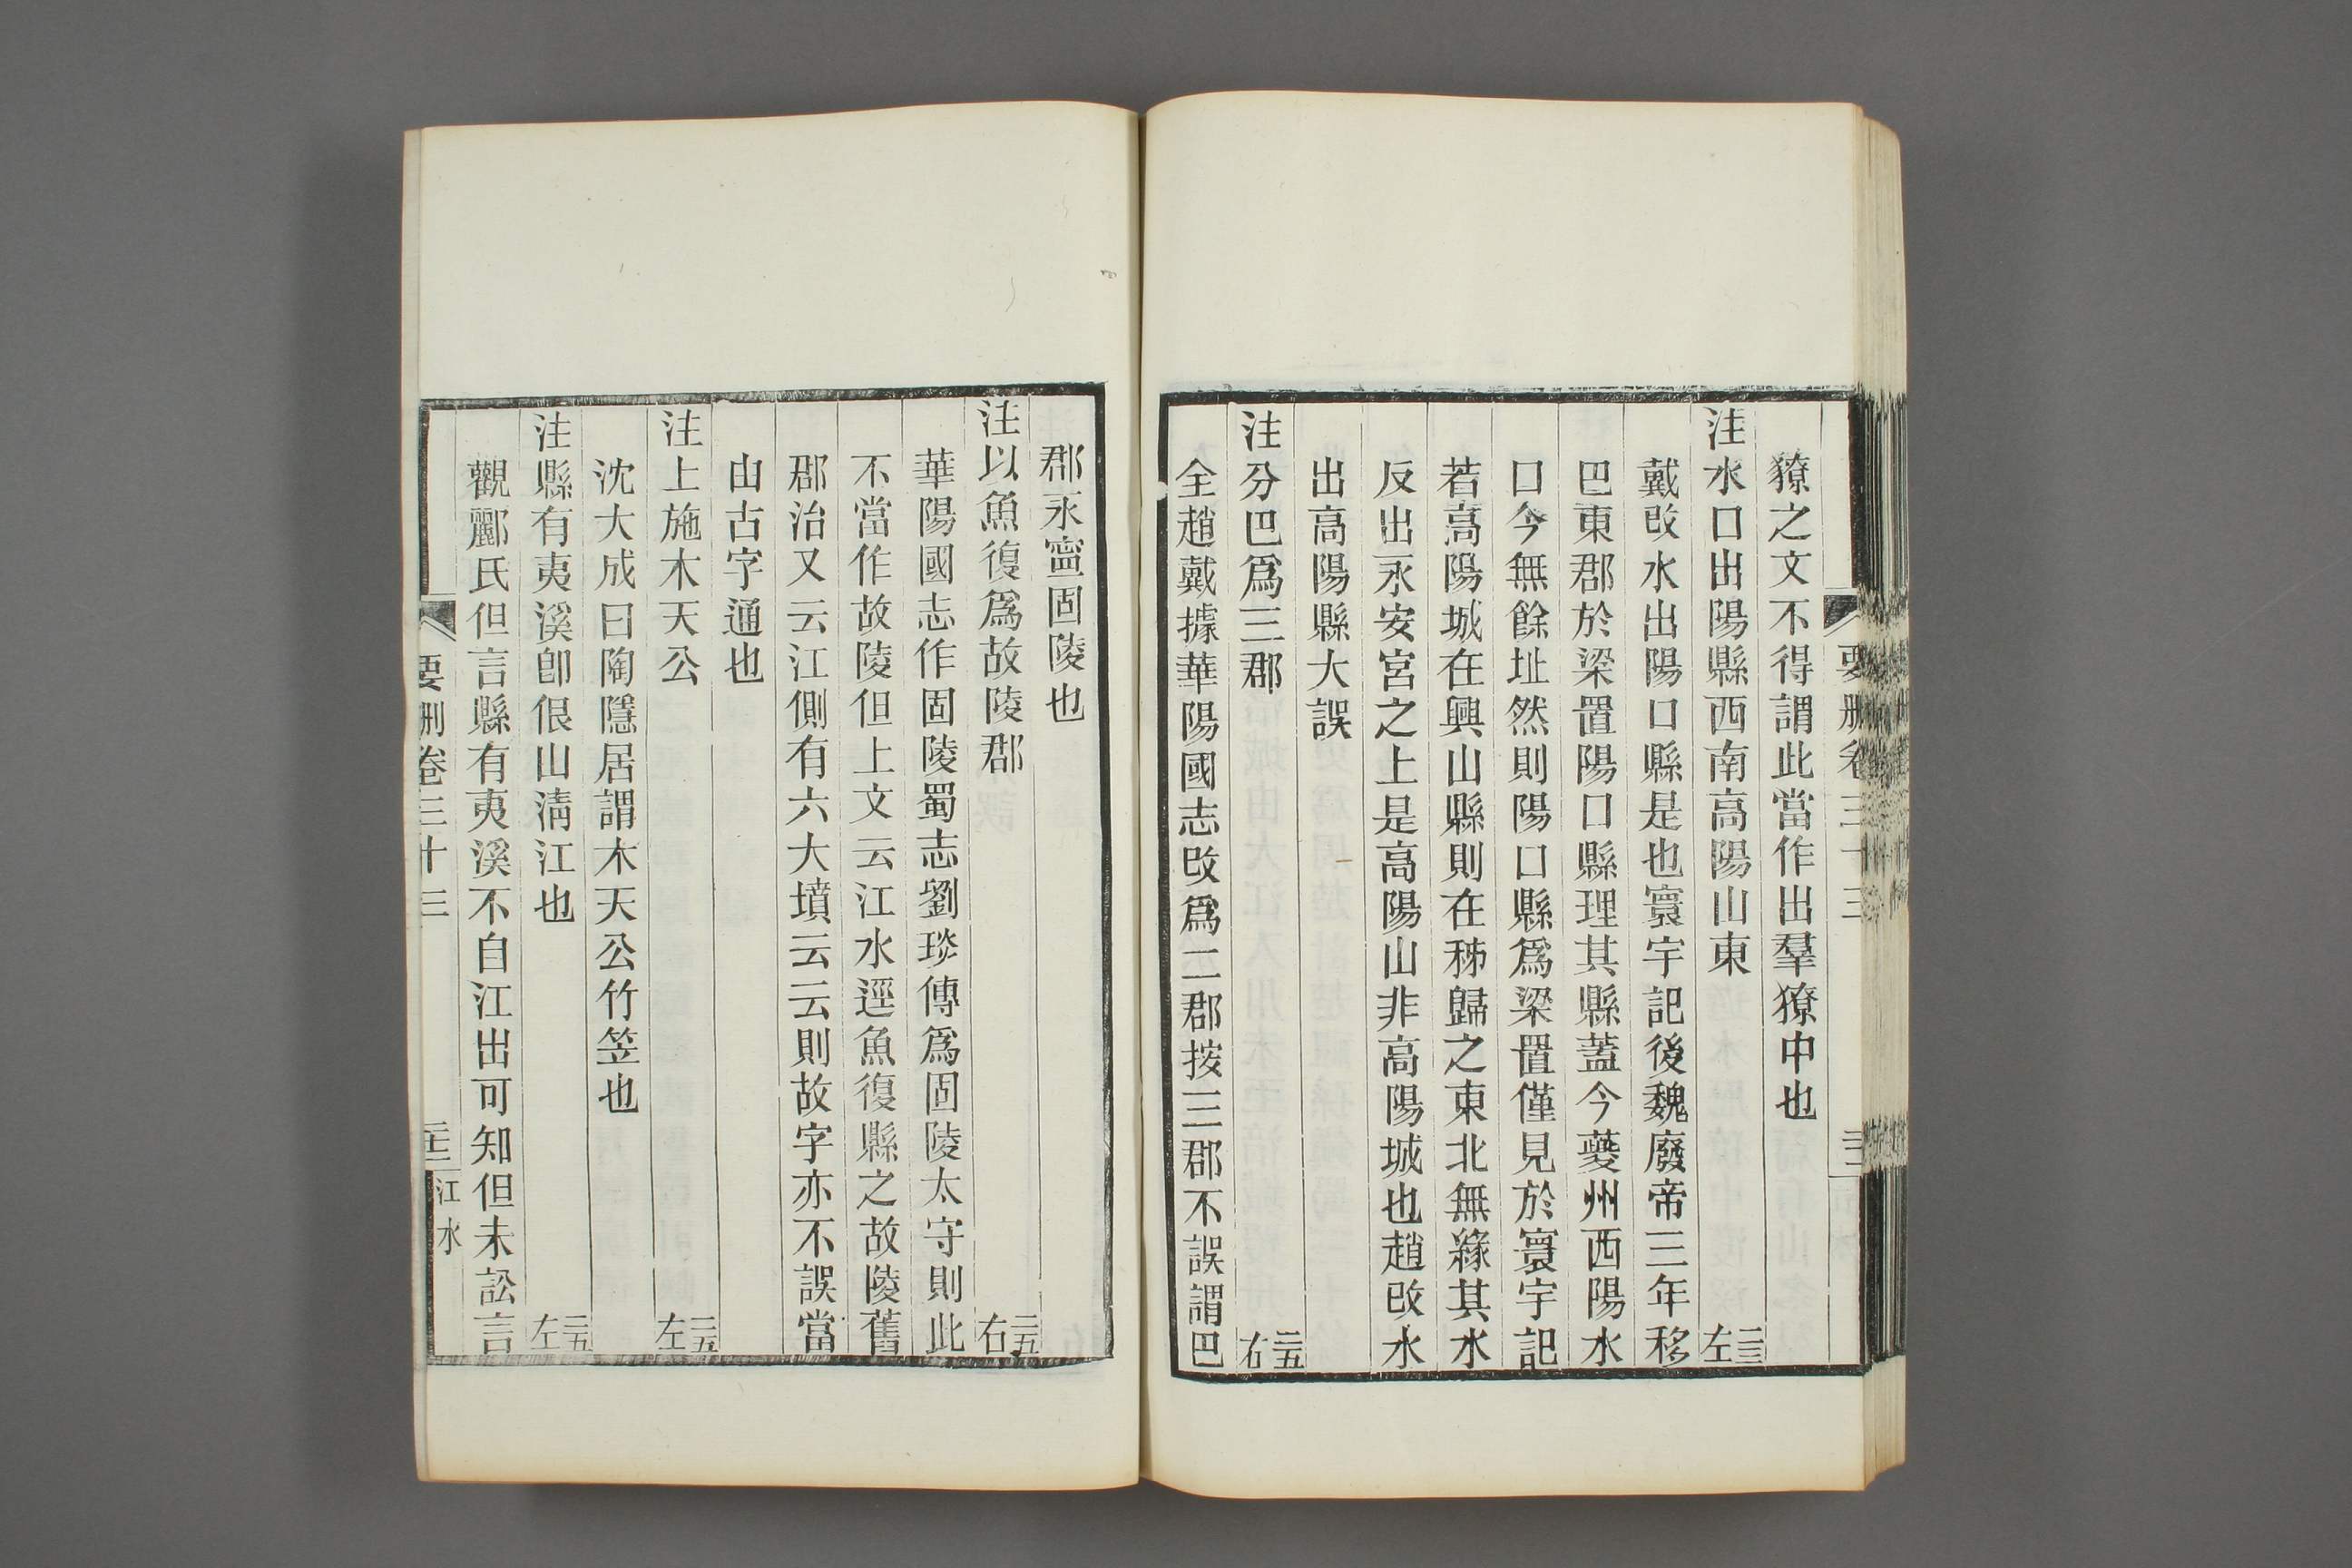 要刪卷三十三
獠之文不得謂此當作出羣獠中也
注水口出陽縣西南高陽山東 二三左
戴改水出陽口縣是也寰宇記後魏廢帝三年移
巴東郡於梁置陽口縣理其縣蓋今夔州西陽水
口今無餘址然則陽口縣爲梁置僅見於寰宇記
若高陽城在興山縣則在秭歸之東北無緣其水
反出永安宮之上是高陽山非高陽城也趙改水
出高陽縣大誤
注分巴爲三郡 二五右
全趙戴據華陽國志改爲二郡按三郡不誤謂巴
郡永寧固陵也
注以魚復爲故陵郡 二五右
華陽國志作固陵蜀志劉琰傳爲固陵太守則此
不當作故陵但上文云江水逕魚復縣之故陵舊
郡治又云江側有六大墳云云則故字亦不誤當
由古字通也
注上施木天公 二五左
沈大成曰陶隱居謂木天公竹笠也
注縣有夷溪卽佷山淸江也 二五左
觀酈氏但言縣有夷溪不自江出可知但未訟言
要刪卷三十三
江水